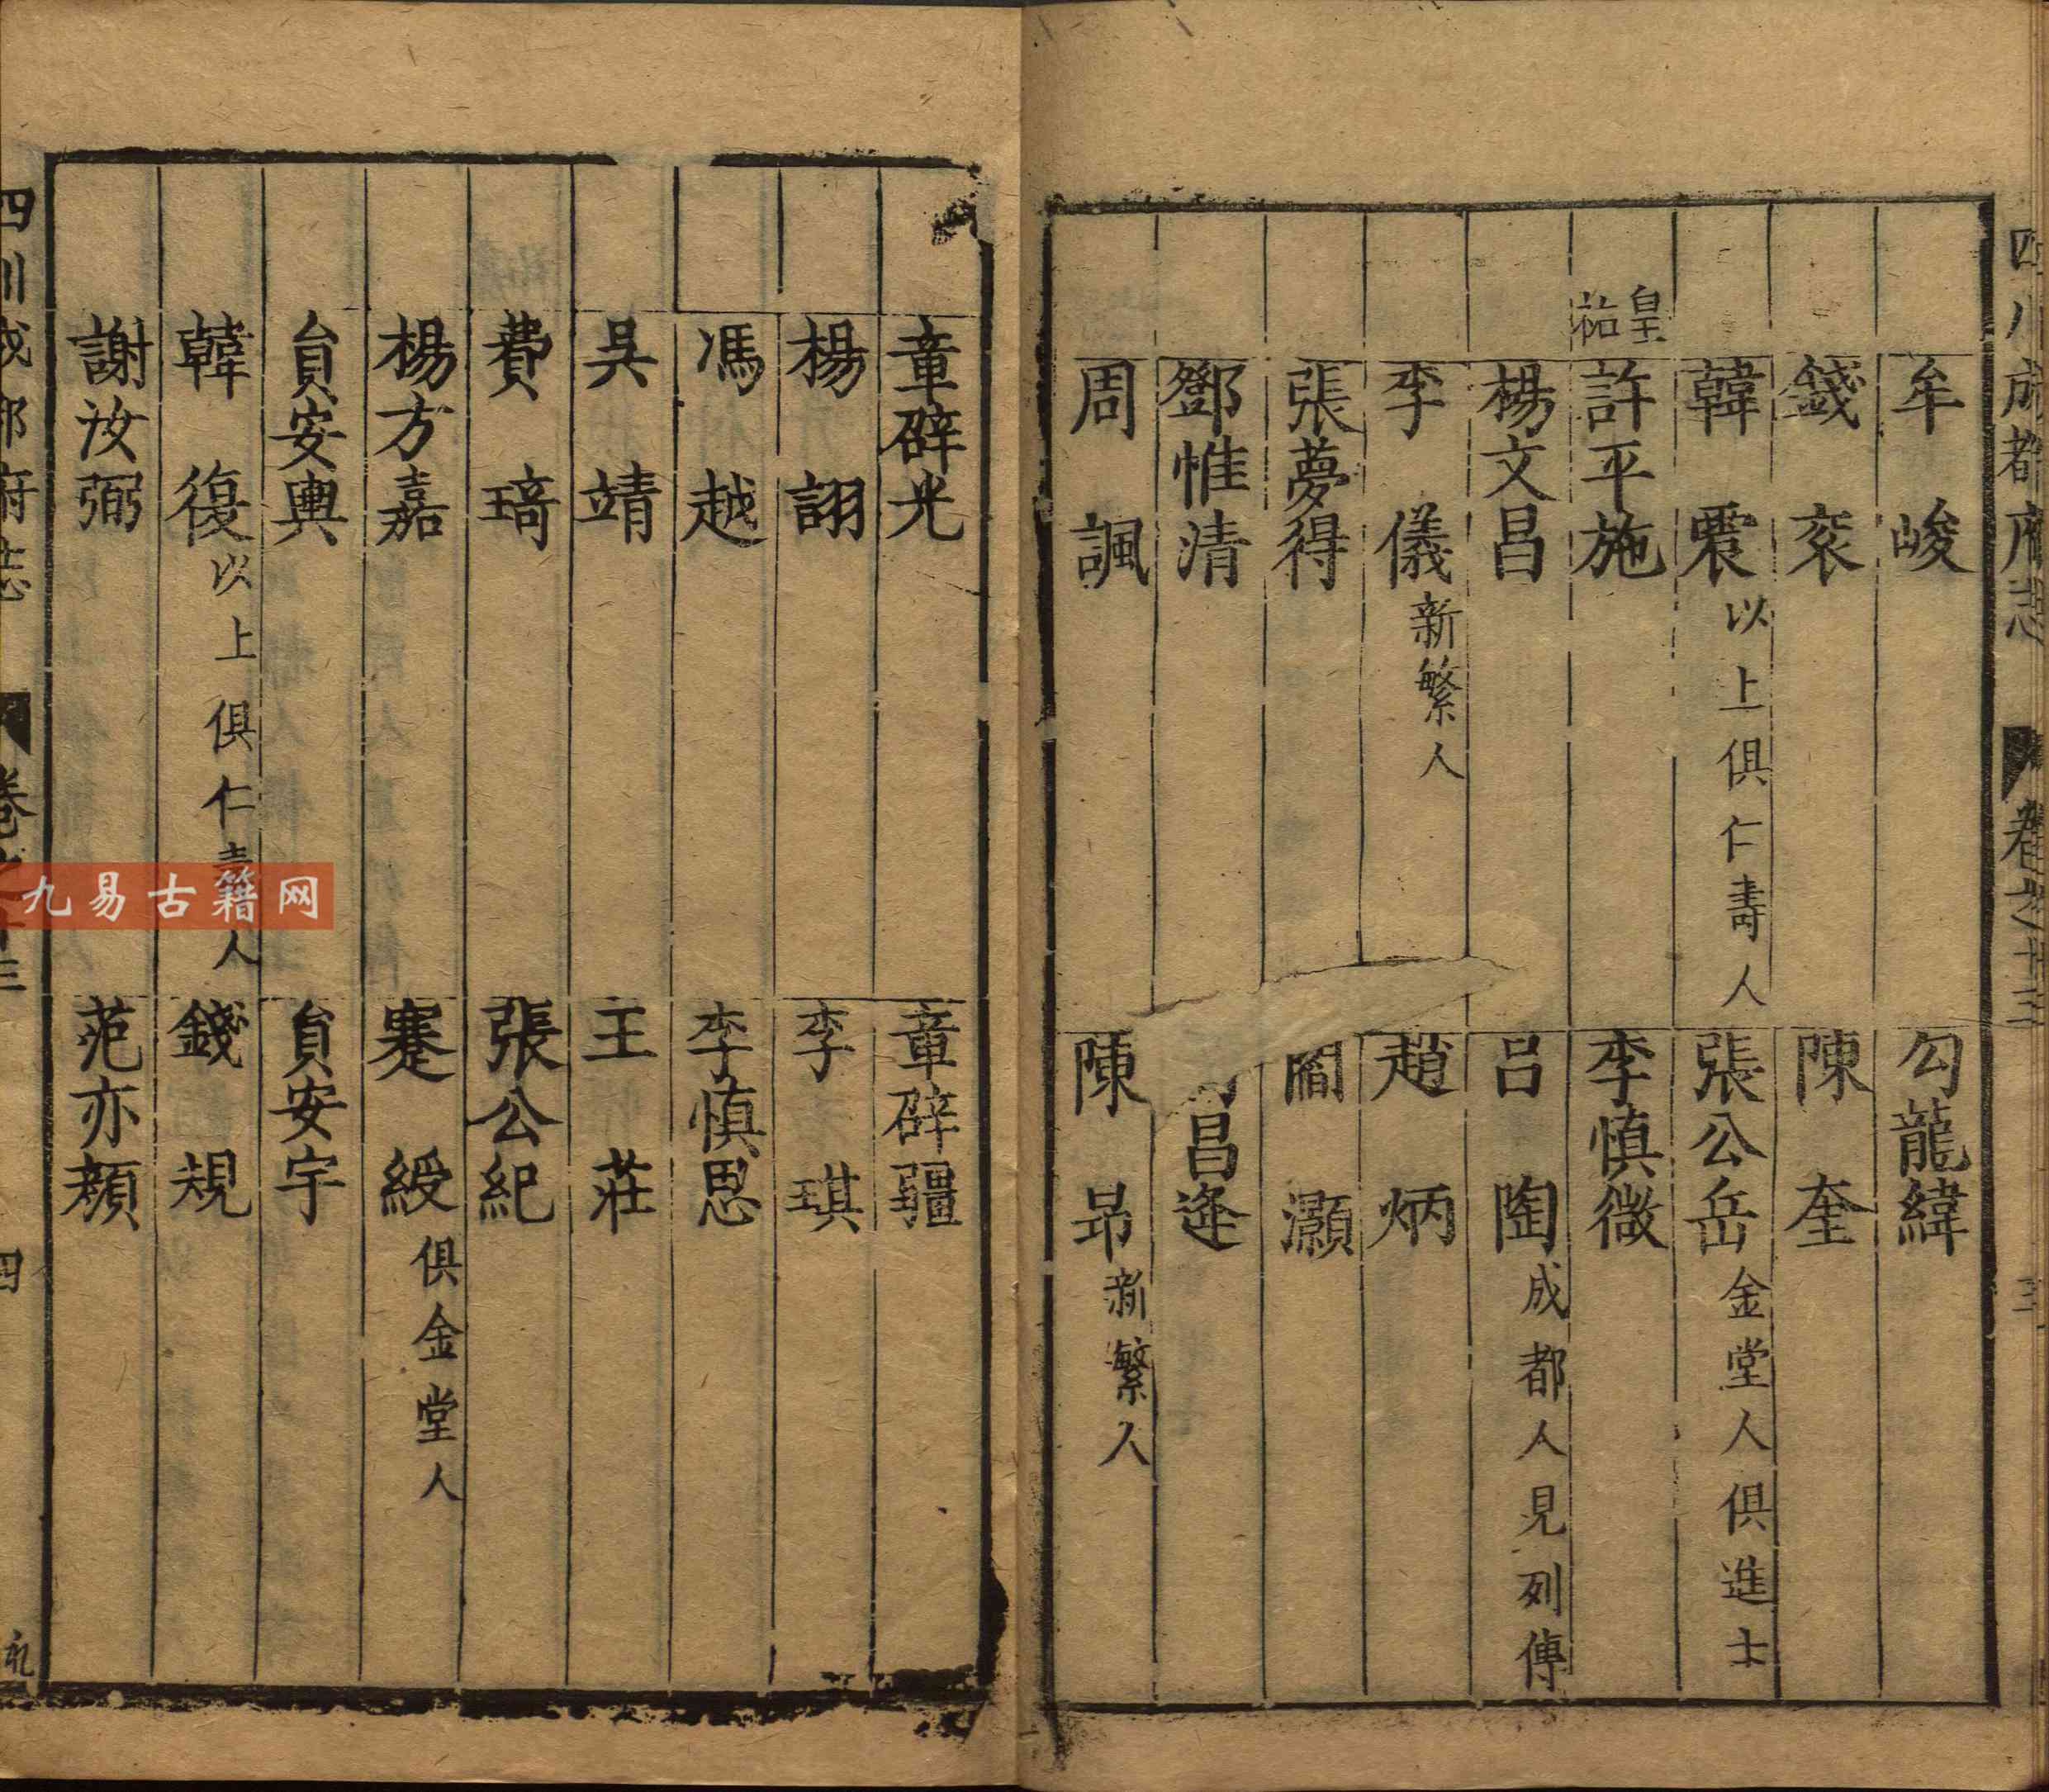 四川成都府志 卷之十三 三
牟峻 勾龍緯
錢袞 陳奎
韓震以上俱仁壽人 張公岳金堂人俱進士
皇祐 許平施 李慎微
楊文昌 呂陶成都人見列傳
李儀新繁人 趙炳
張夢得 閻灝
鄧惟清 昌逢
周諷 陳昂新繁人
章辟光 章辟疆
楊詡 李琪
馮越 李慎思
吳靖 王莊
費琦 張公紀
楊方嘉 蹇綬俱金堂人
貟安輿 貟安宇
韓復以上俱仁壽人 錢規
謝汝弼 范亦顏
四川成都府志 卷之十三 四
九易古籍网